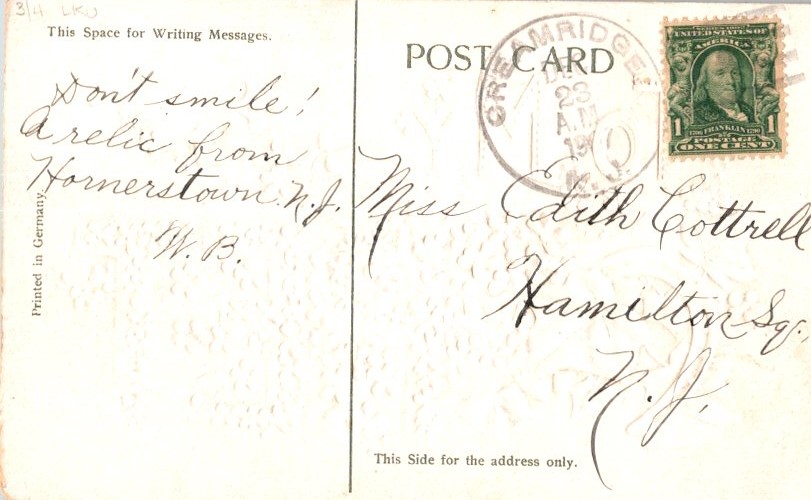 3/4 LKU
This Space for Writing Messages.
Don't smile!
A relic from
Hornerstown N.J.
W. B.
Printed in Germany.
POST CARD
CREAMRIDGE
DEC
23
A.M.
19
N.J.
SERIES 1902
UNITED STATES OF
AMERICA
1 1706 FRANKLIN 1790 1
POSTAGE
ONE CENT
Miss Edith Cottrell
Hamilton Sq.,
N.J.
This Side for the address only.